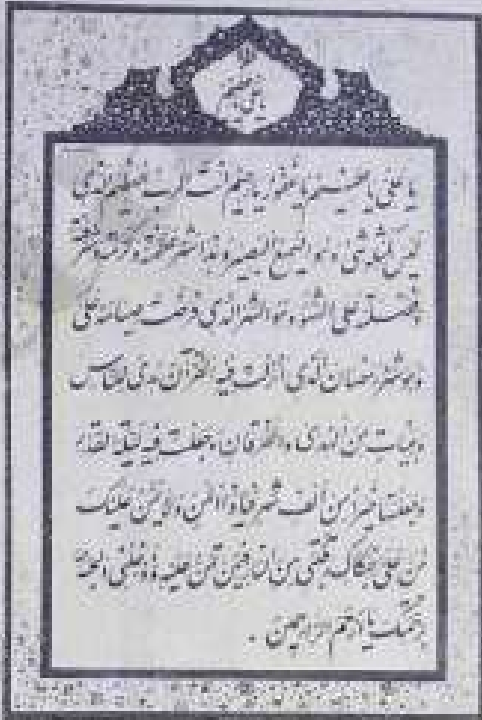 يا علي يا عظيم
يا علي يا عظيم يا غفور يا رحيم انت الرب العظيم الذي
ليس كمثله شئ و هو السميع البصير و هذا شهر عظمته و كرمته و شرفته
و فضلته علي الشهور و هو الشهر الذي فرضت صيامه علي
و هو شهر رمضان الذي انزلت فيه القرآن هدي للناس
و بينات من الهدي و الفرقان و جعلت فيه ليلة القدر
و جعلتها خيرا من الف شهر فياذا المن و لا يمن عليك
من علي بفكاك رقبتي من النار فيمن تمن عليه و ادخلني الجنة
برحمتك يا ارحم الراحمين .